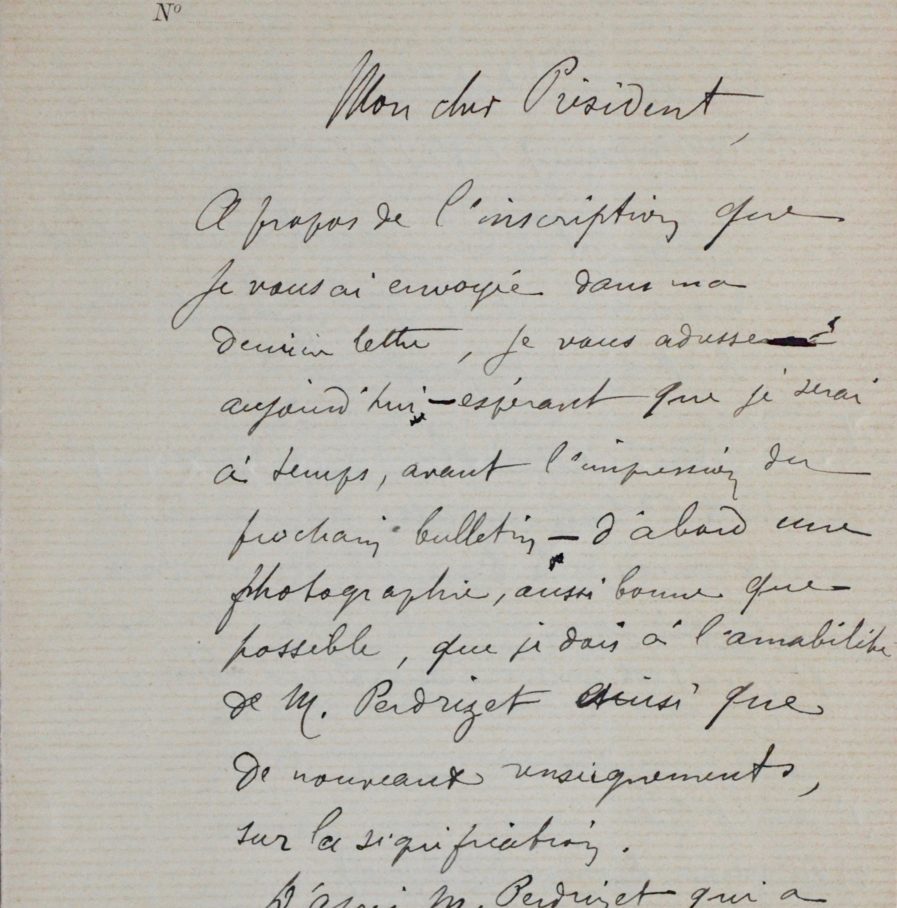 No
Mon cher Président,
A propos de l'inscription que
je vous ai envoyée dans ma
dernière lettre, je vous adresse
aujourd'hui, — espérant que je serai
à temps, avant l'impression du
prochain bulletin — d'abord une
photographie, aussi bonne que
possible, que je dois à l'amabilité
de M. Perdrizet ainsi que
de nouveaux renseignements,
sur la signification.
D'après M. Perdrizet qui a